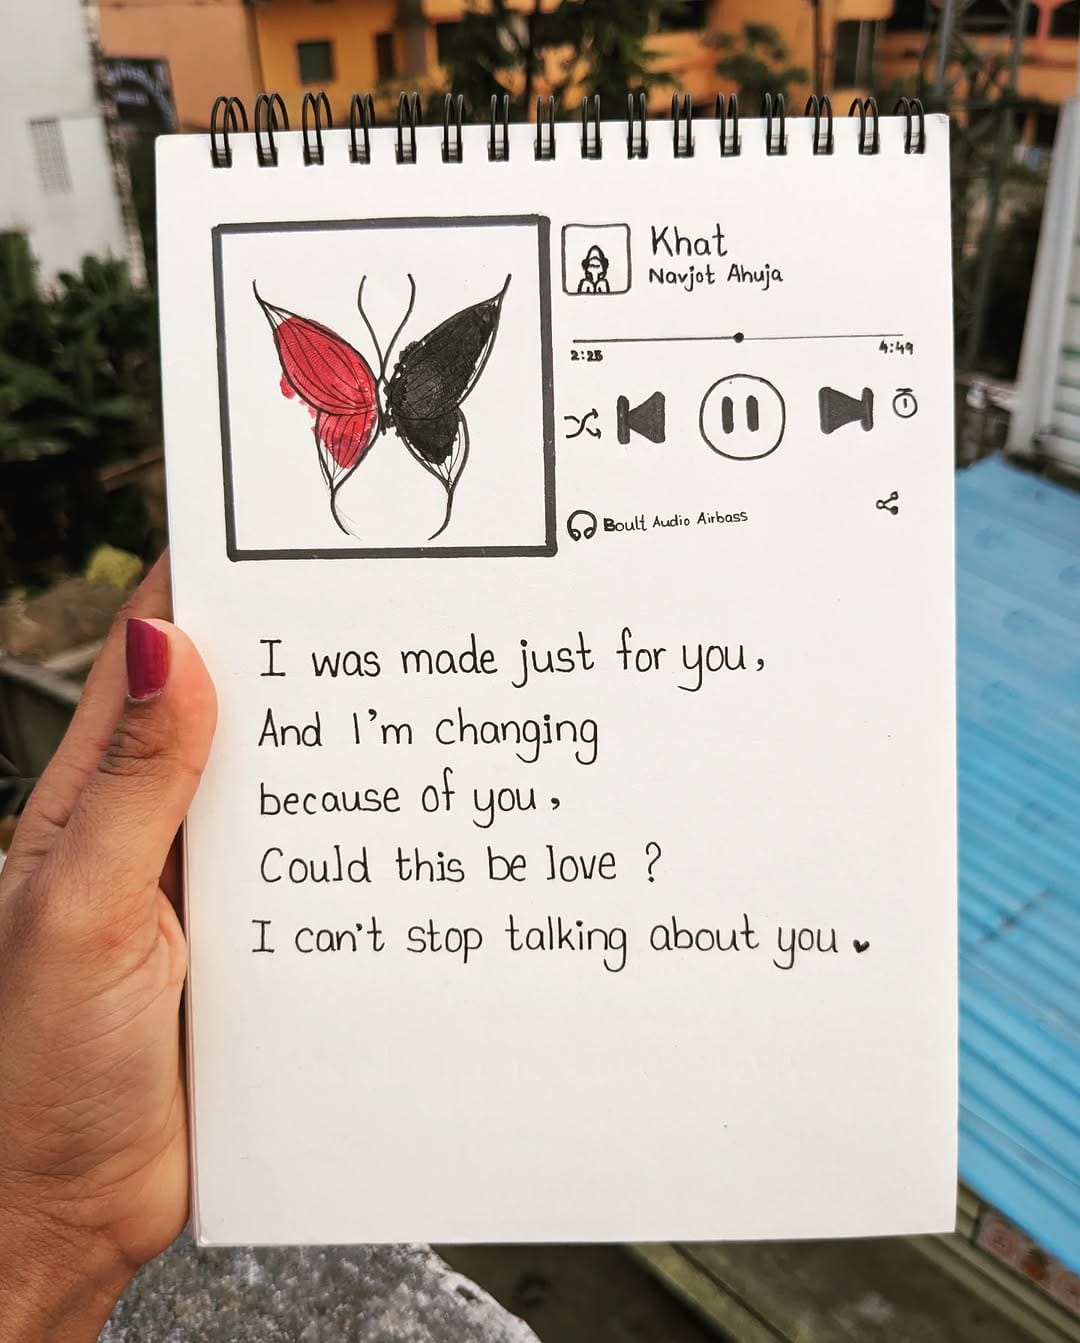 Khat
Navjot Ahuja
2:25
4:49
Boult Audio Airbass
I was made just for you,
And I'm changing
because of you,
Could this be love ?
I can't stop talking about you